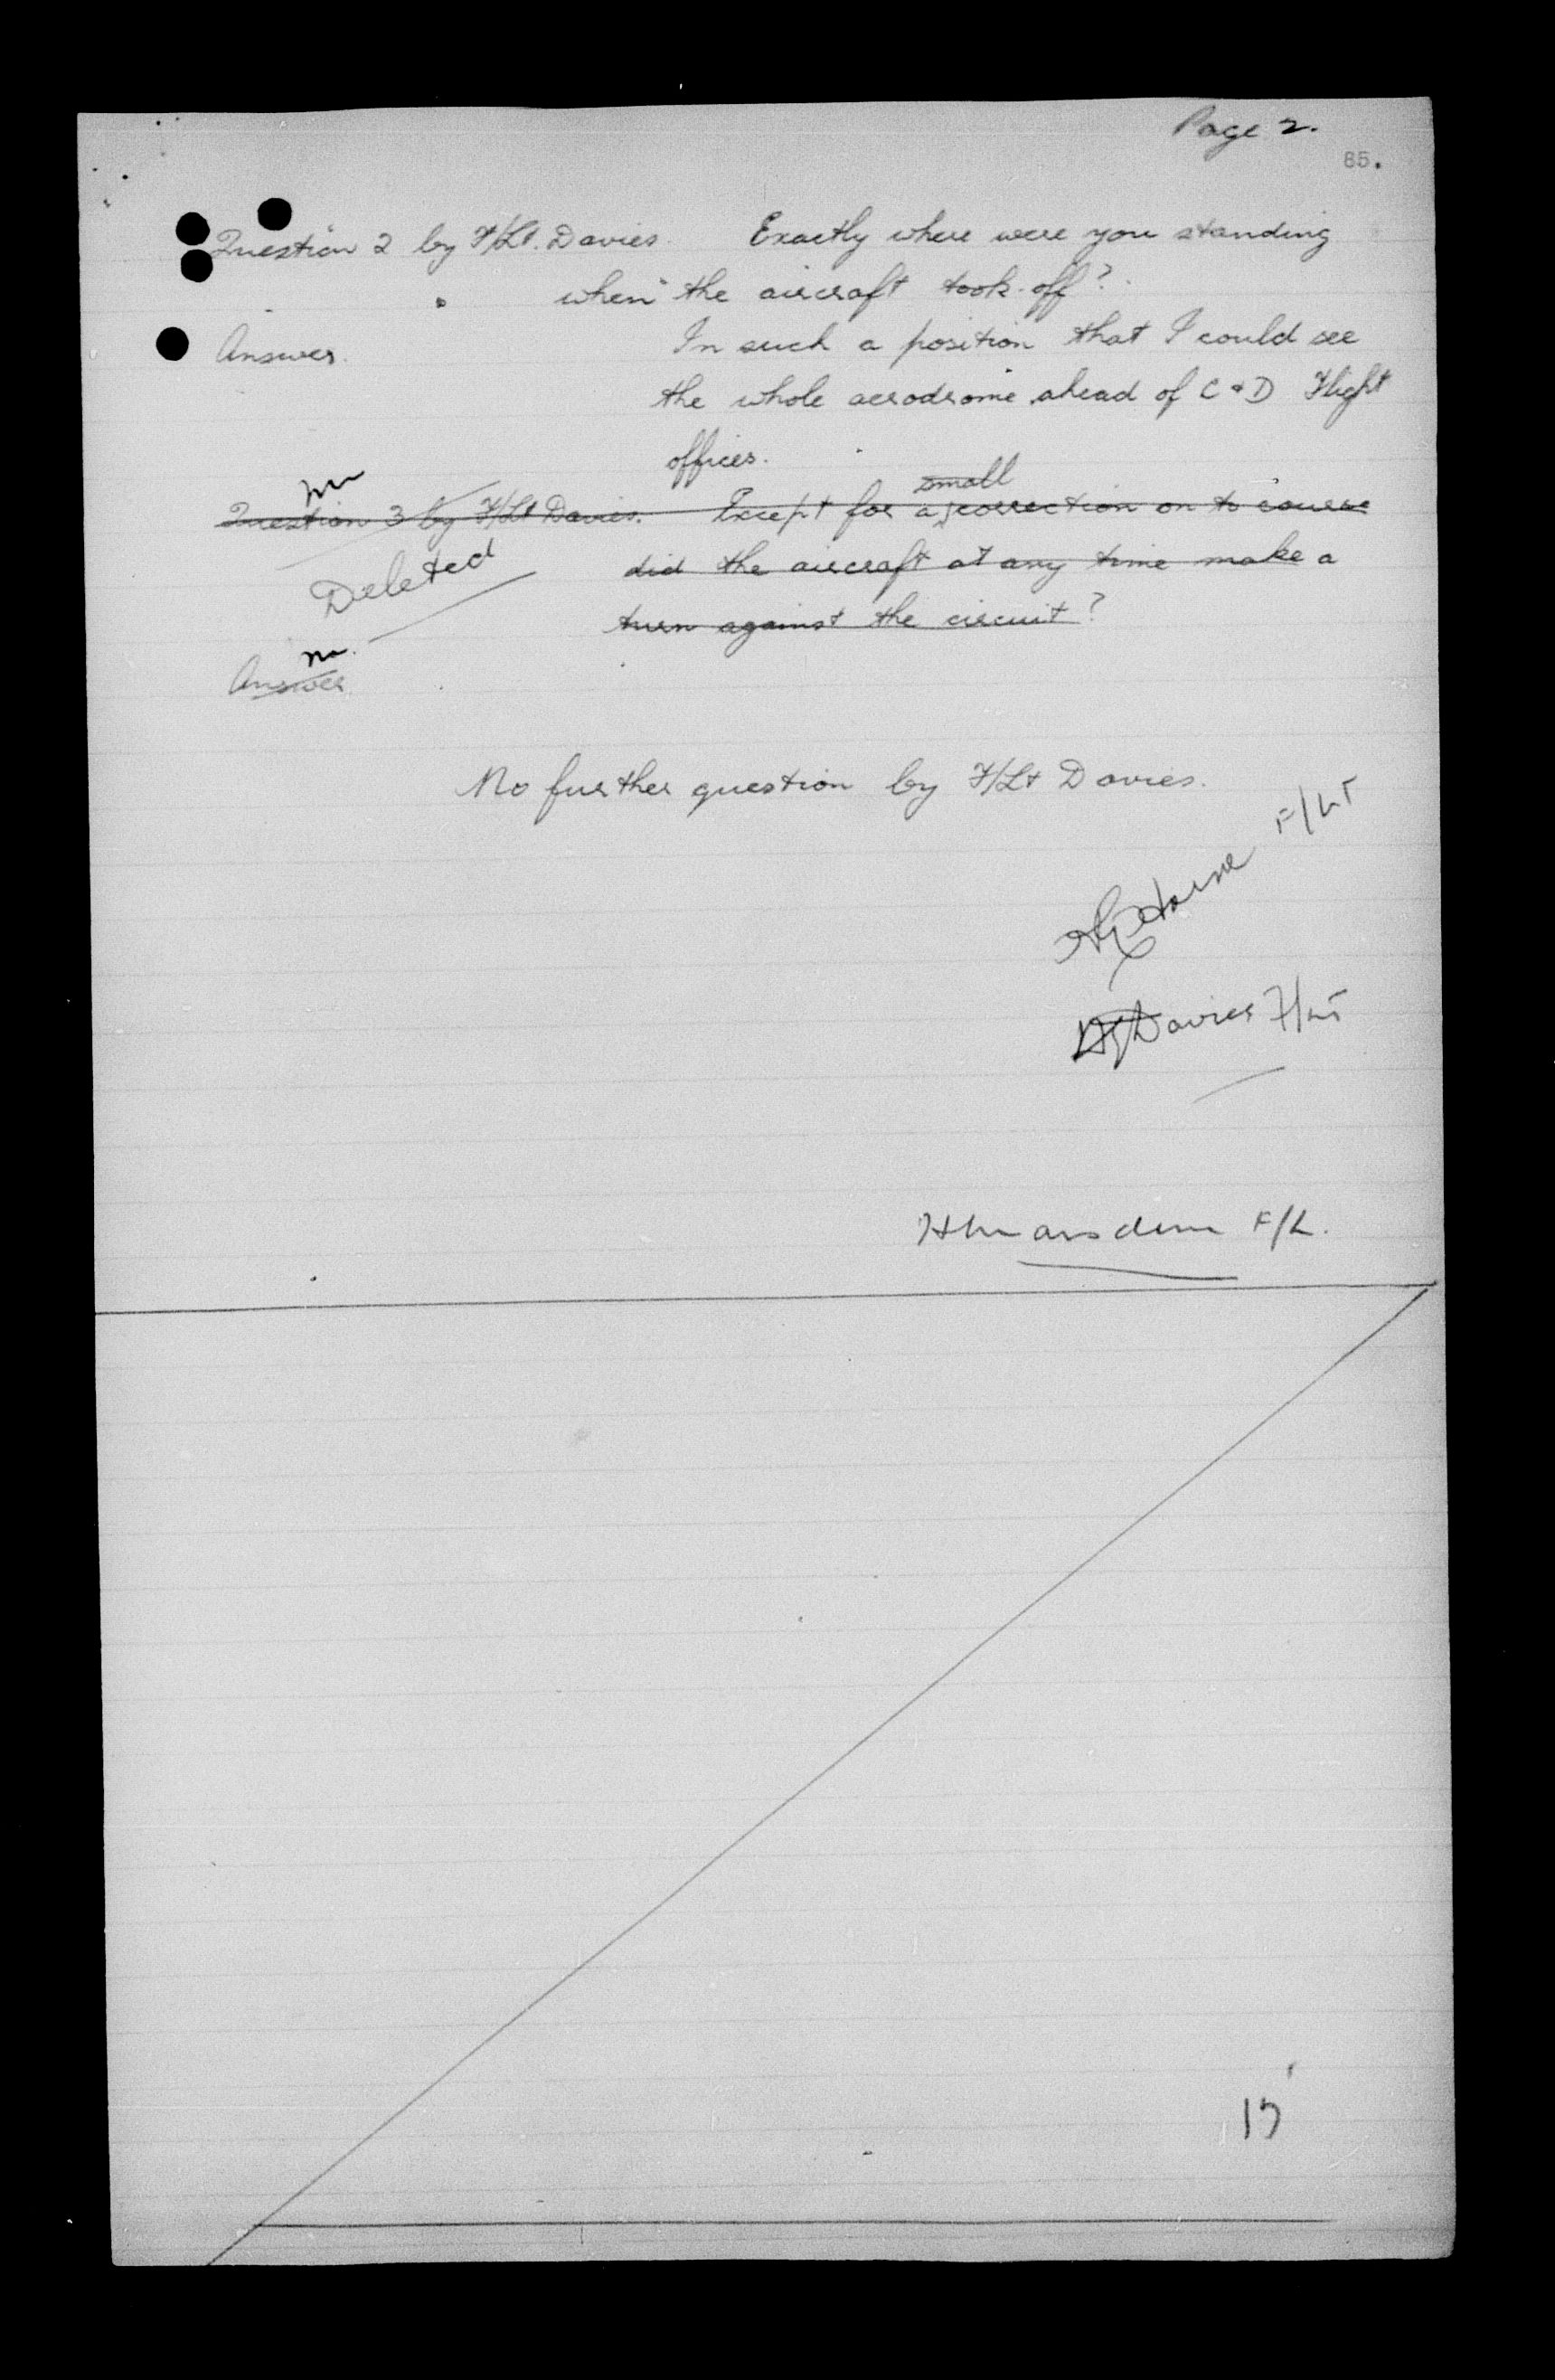 Page 2.
85.
Question 2 by F/Lt. Davies. Exactly where were you standing
when the aircraft took-off?
Answer. In such a position that I could see
the whole aerodrome ahead of C & D Flight
offices.
small
Question 3 by F/Lt Davies. Except for a correction on to course
did the aircraft at any time make a
Deleted
turn against the circuit?
Answer
No further question by F/Lt Davies.
F/LT
Davies F/Lt
F/L.
15